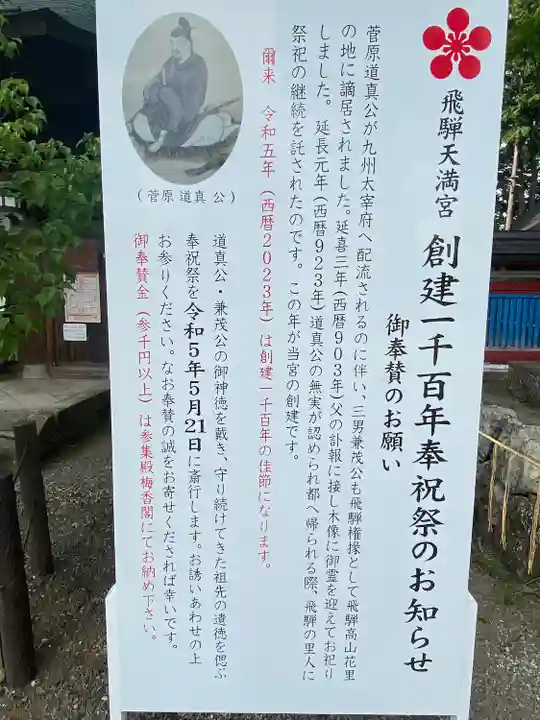 飛騨天満宮
創建一千百年奉祝祭のお知らせ
御奉賛のお願い
菅原道真公が九州太宰府へ配流されるのに伴い、三男兼茂公も飛騨権掾として飛騨高山花里
の地に謫居されました。延喜三年(西暦903年)父の訃報に接し木像に御霊を迎えてお祀り
しました。延長元年(西暦923年)道真公の無実が認められ都へ帰られる際、飛騨の里人に
祭祀の継続を託されたのです。この年が当宮の創建です。
爾来 令和五年(西暦2023年)は創建一千百年の佳節になります。
(菅原道真公)
道真公・兼茂公の御神徳を戴き、守り続けてきた祖先の遺徳を偲ぶ
奉祝祭を令和5年5月21日に斎行します。お誘いあわせの上
お参りください。なお奉賛の誠をお寄せくだされば幸いです。
御奉賛金(参千円以上)は参集殿梅香閣にてお納め下さい。